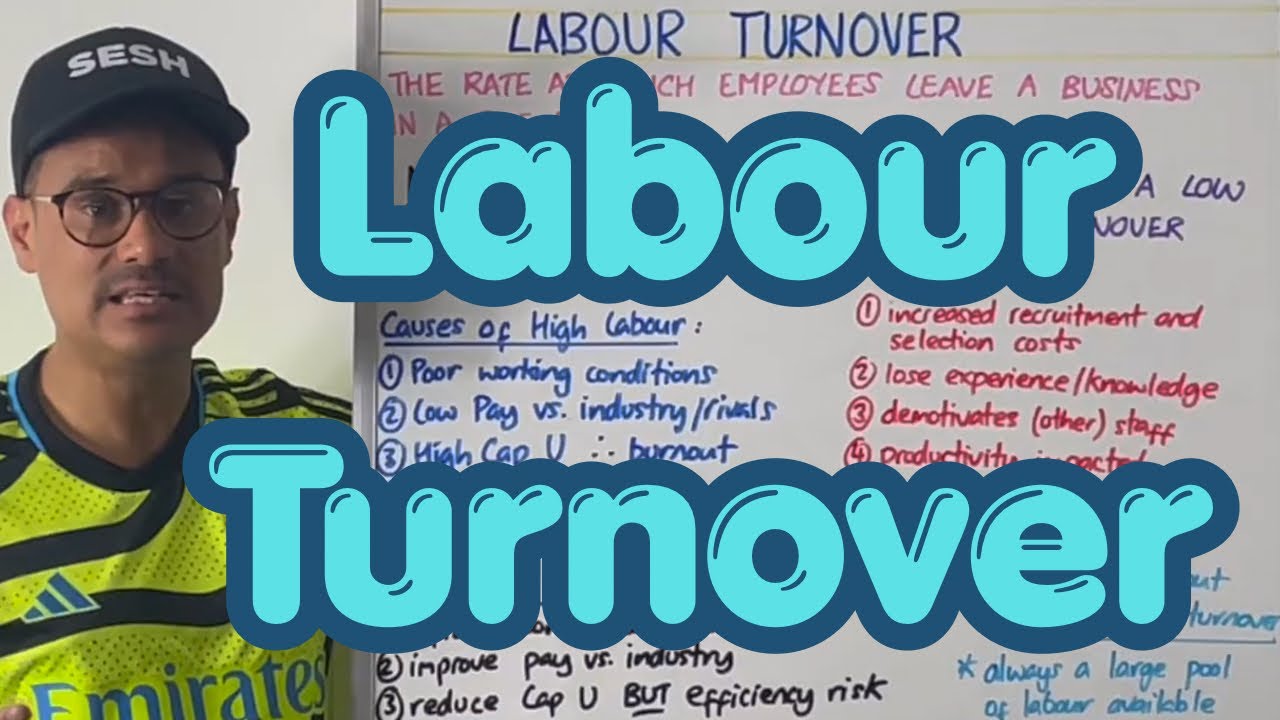 SESH
Emirates
LABOUR TURNOVER
THE RATE EMPLOYEES LEAVE A BUSINESS
IN A
A LOW
Labour
Causes of High Labour:
① Poor working conditions
② Low Pay vs. industry/rivals
③ High Cap U ∴ burnout
① increased recruitment and
selection costs
② lose experience/knowledge
③ demotivates (other) staff
④ productivity impacted
Turnover
② improve pay vs. industry
③ reduce Cap U BUT efficiency risk
turnover
* always a large pool
of labour available